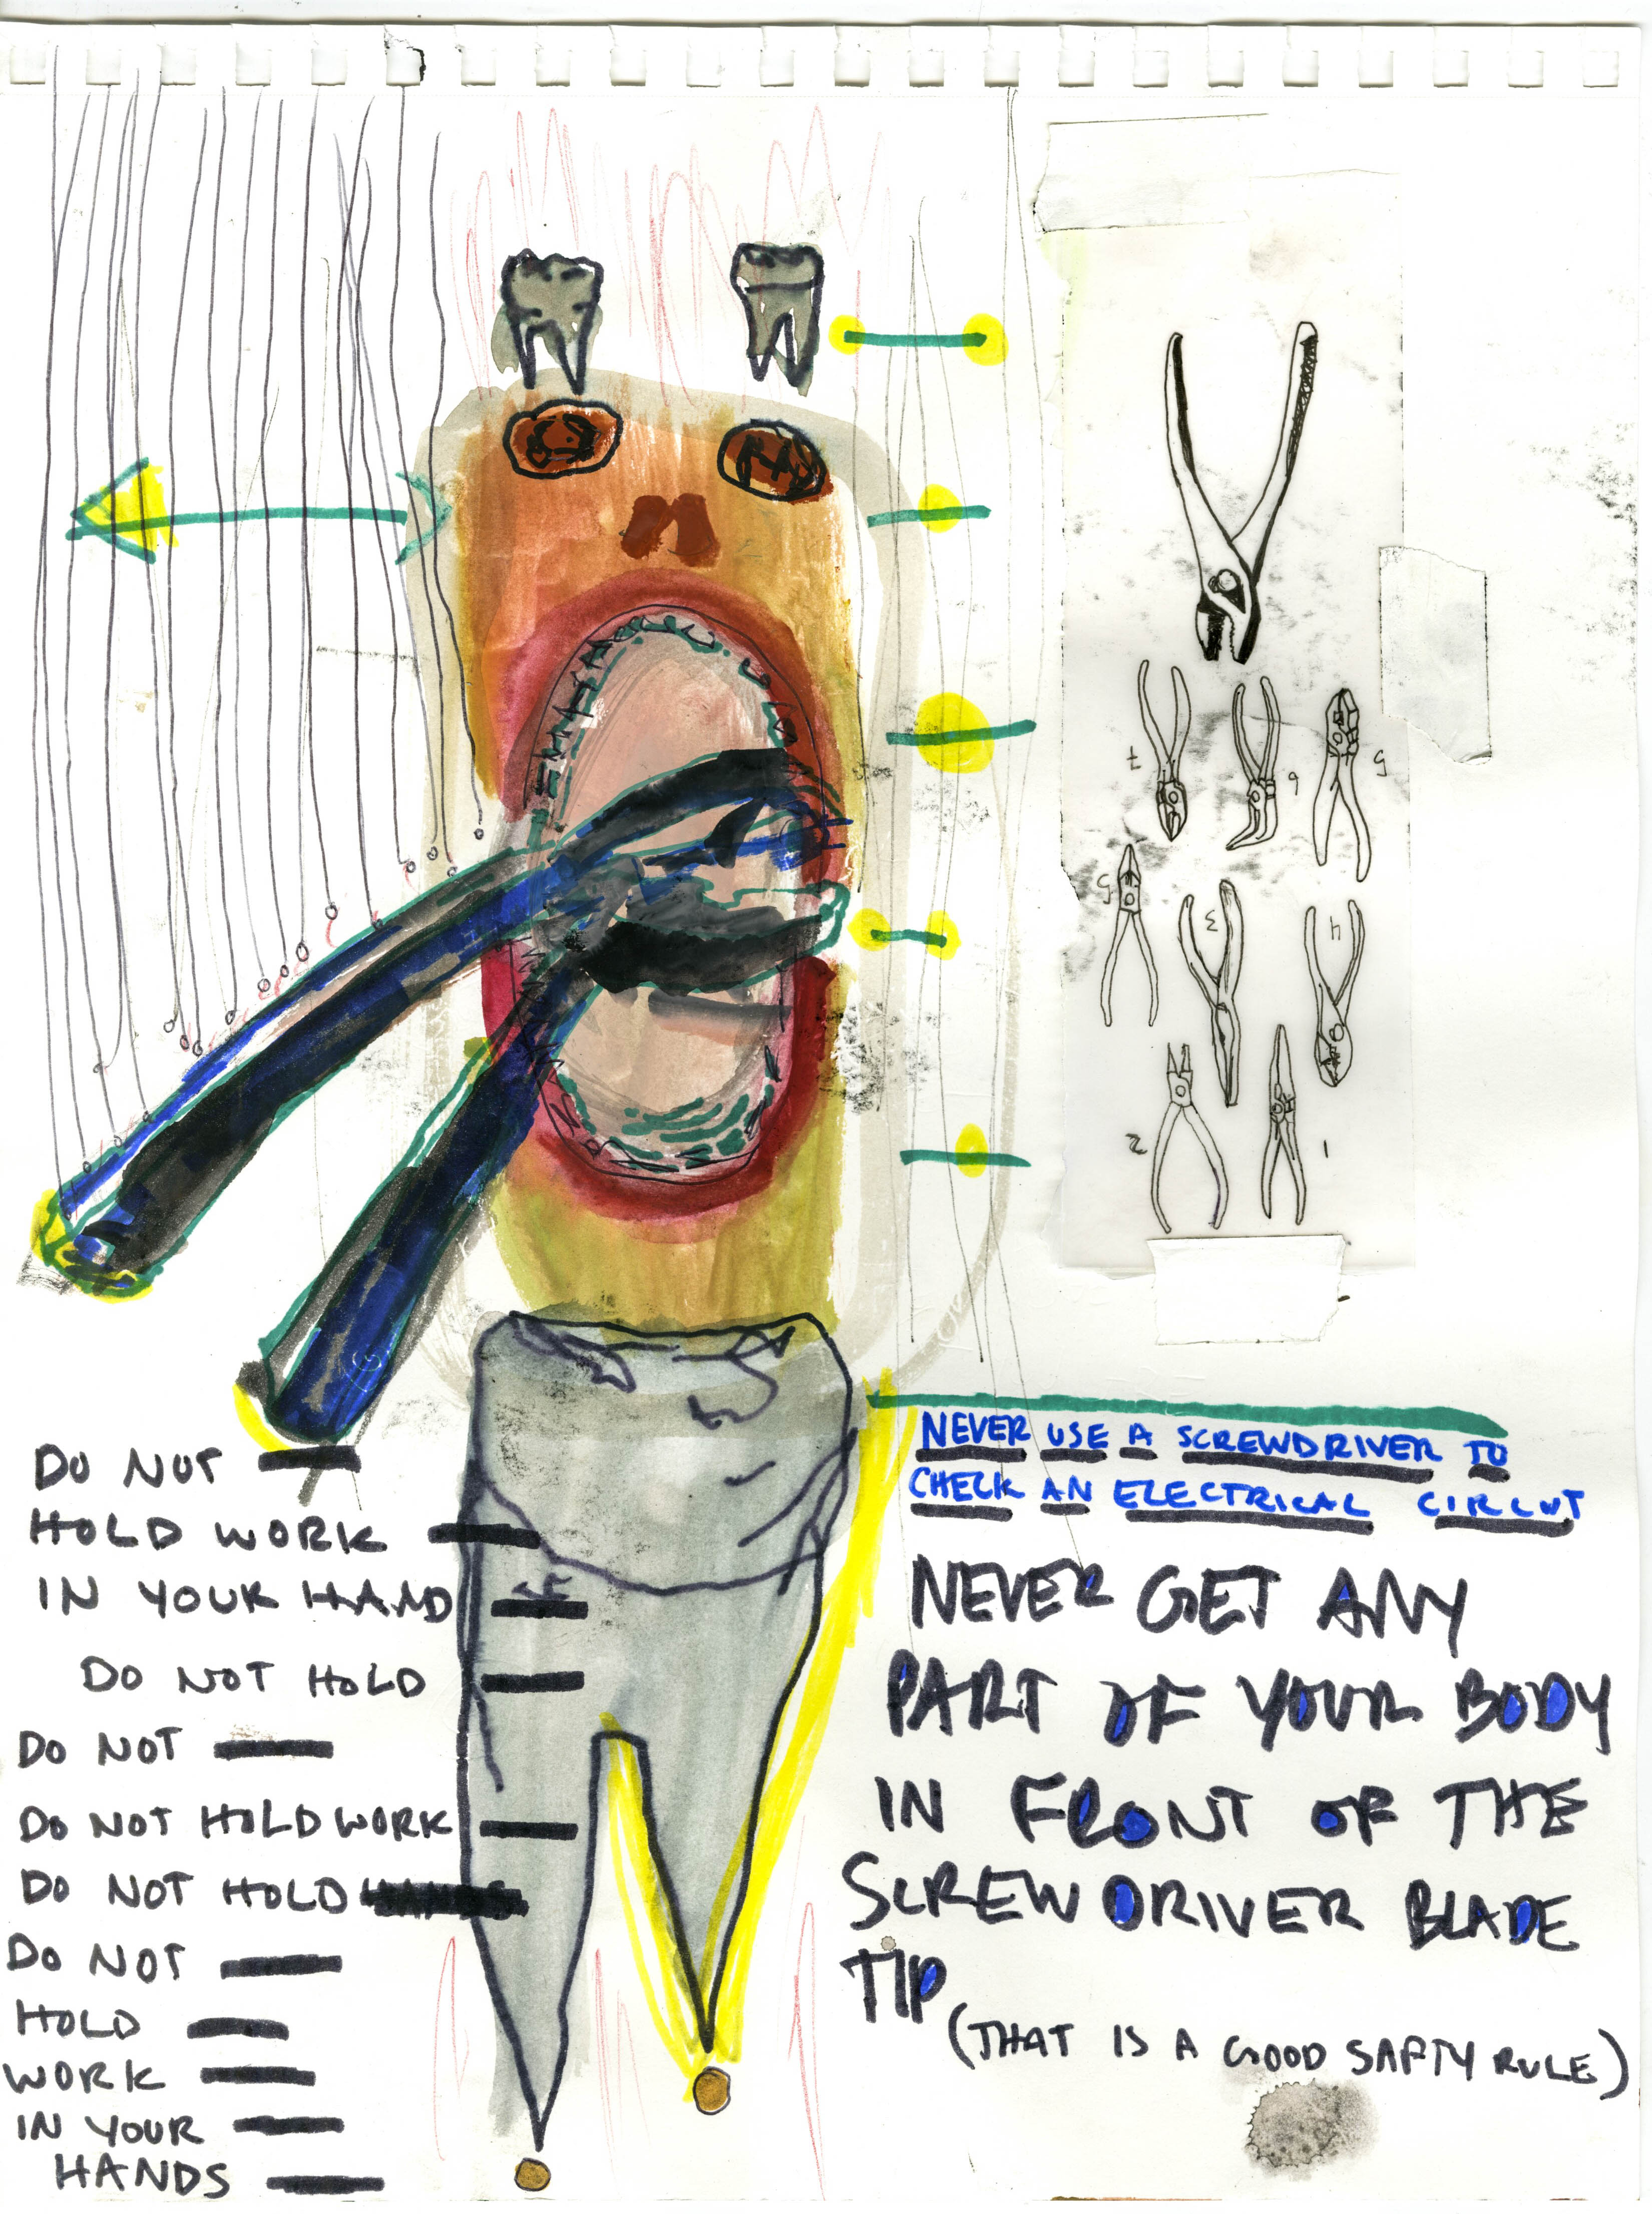 7 6
5 3 4
2 1
DO NOT
HOLD WORK
IN YOUR HAND
DO NOT HOLD
DO NOT
DO NOT HOLD WORK
DO NOT HOLD
DO NOT
HOLD
WORK
IN YOUR
HANDS
NEVER USE A SCREWDRIVER TO
CHECK AN ELECTRICAL CIRCUT
NEVER GET ANY
PART OF YOUR BODY
IN FRONT OF THE
SCREW DRIVER BLADE
TIP
(THAT IS A GOOD SAFTY RULE)